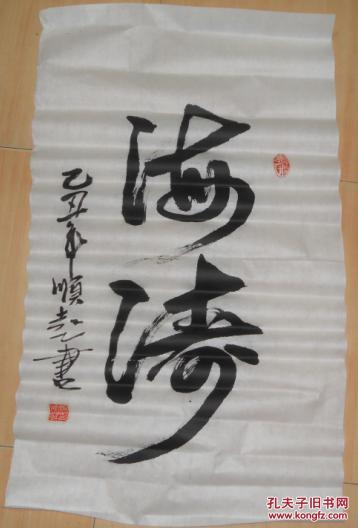 海涛
乙丑年顺
书
孔夫子旧书网
www.kongfz.com